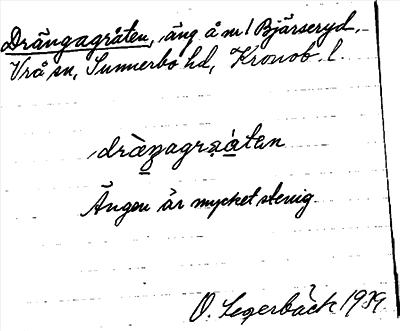 Drängagråten, äng å nr 1 Bjärseryd,
Vrå sn, Sunnerbo hd, Kronob. l.
dràŋagrɑ̀tən
Ängen är mycket stenig.
O. Segerbäck 1939